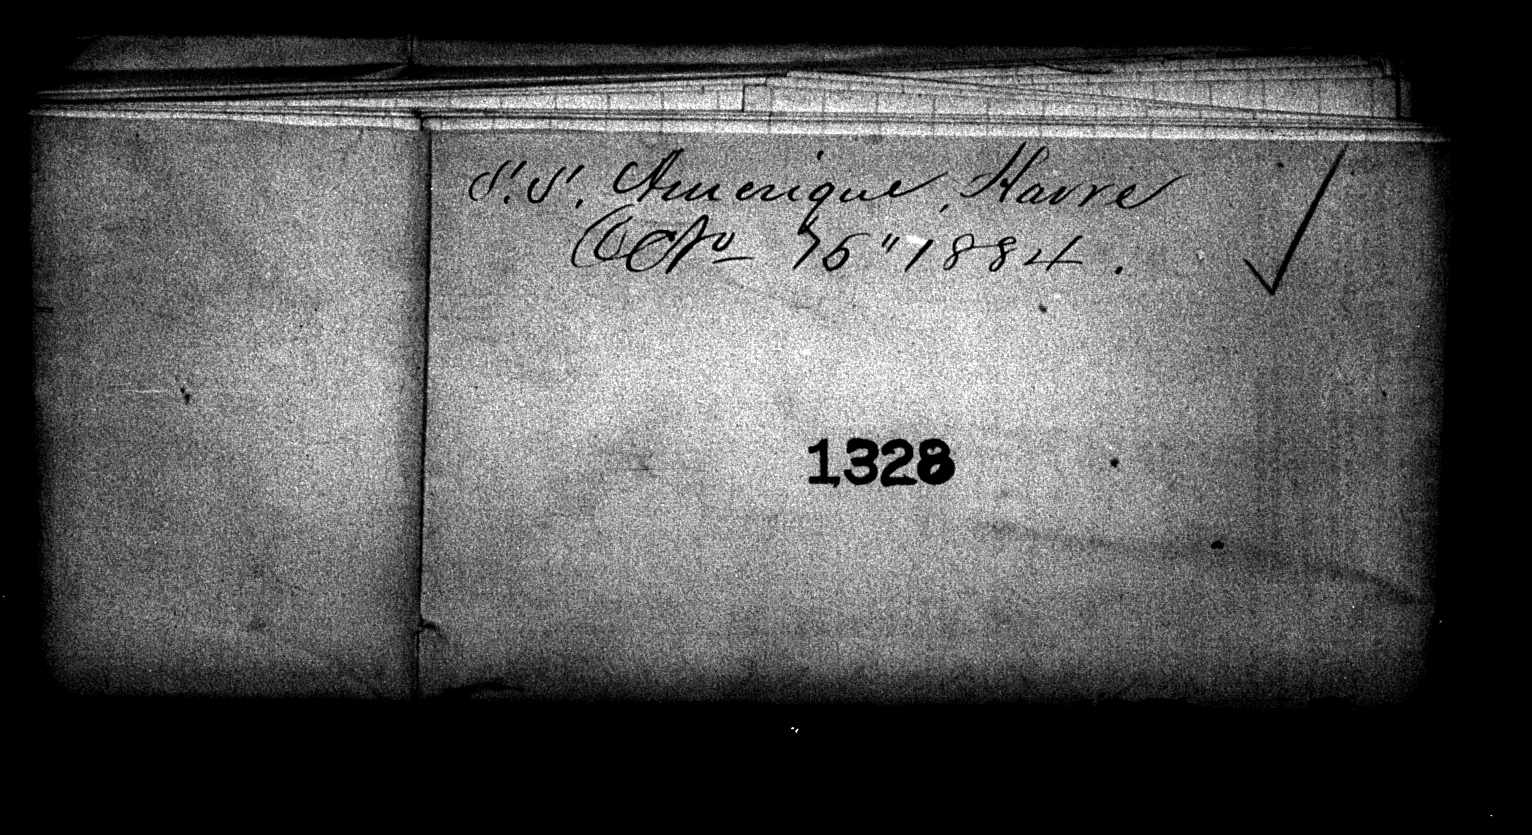 S.S. Amerique, Havre
Octo 15" 1884.
1328